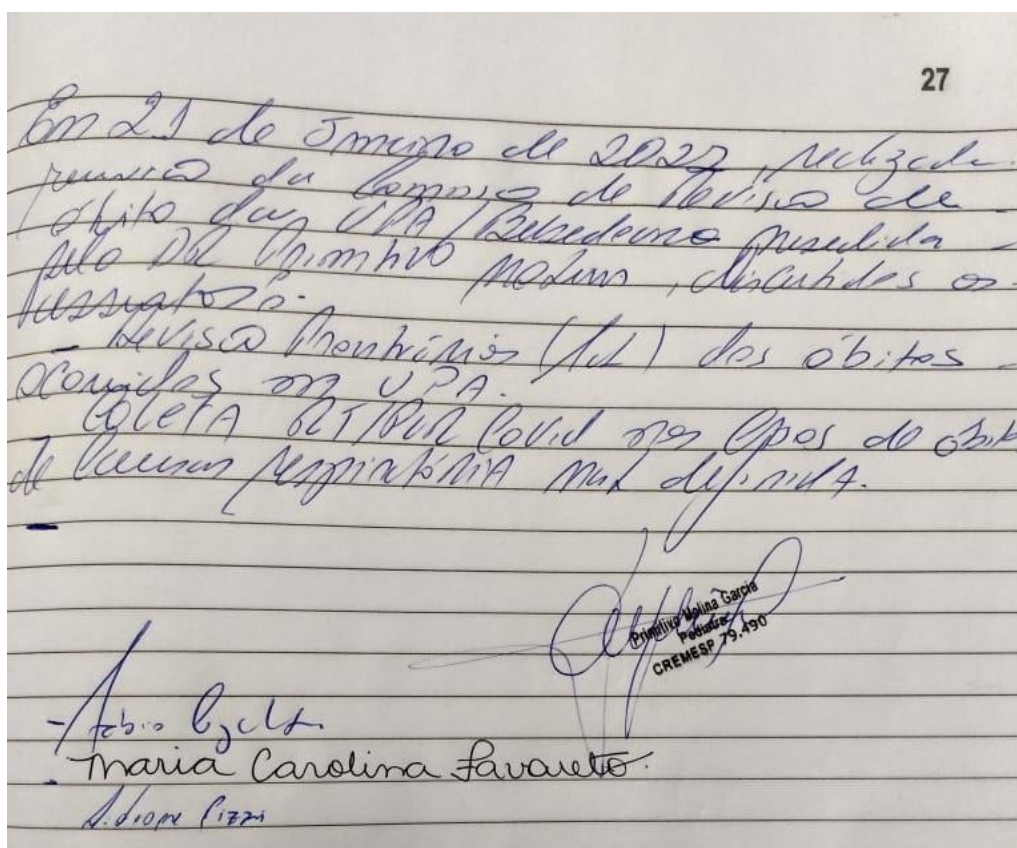 27
Em 21 de Janeiro de 2022, realizada
reunião da Comissão de Revisão de
óbito das UPA / presidida
pelo Dr Primitivo Molina, discutidos os
- Revisão Prontuários () dos óbitos
ocorridos na UPA.
COLETA RT/PCR Covid nos de óbit
de Causas respiratóriA mal definidA.
Primitivo Molina Garcia
Pediatra
CREMESP 79.490
- Fabio
- Maria Carolina Favareto.
Pizzi